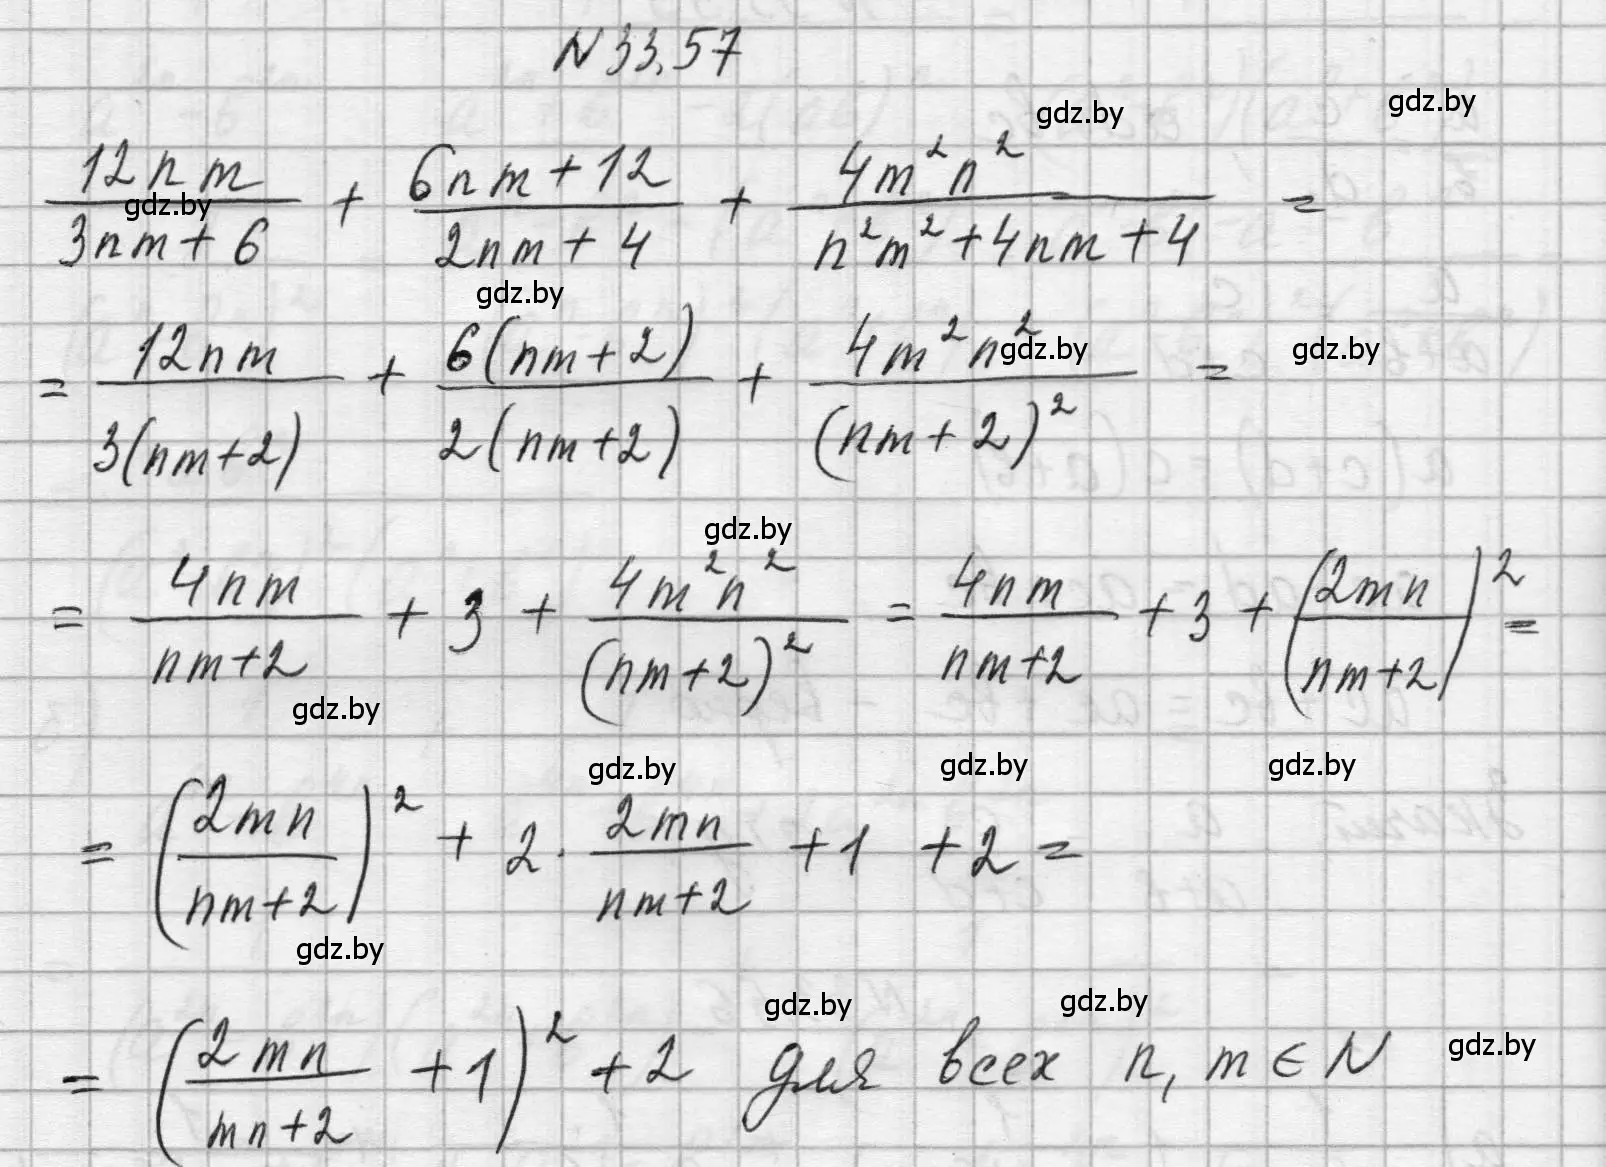 N 33.57
gdz.by
gdz.by
12nm/(3nm+6) + (6nm+12)/(2nm+4) + 4m²n²/(n²m²+4nm+4) =
gdz.by
gdz.by
= 12nm/(3(nm+2)) + 6(nm+2)/(2(nm+2)) + 4m²n²/(nm+2)² =
gdz.by
gdz.by
gdz.by
= 4nm/(nm+2) + 3 + 4m²n²/(nm+2)² = 4nm/(nm+2) + 3 + (2mn/(nm+2))² =
gdz.by
gdz.by
gdz.by
gdz.by
= (2mn/(nm+2))² + 2·2mn/(nm+2) + 1 + 2 =
gdz.by
gdz.by
gdz.by
= (2mn/(mn+2) + 1)² + 2 для всех n, m ∈ N
gdz.by